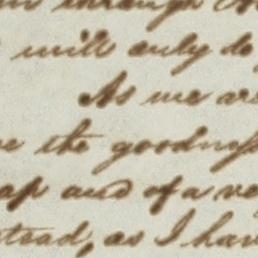 through
will only do
As we are
the goodness
and of a
instead, as I have